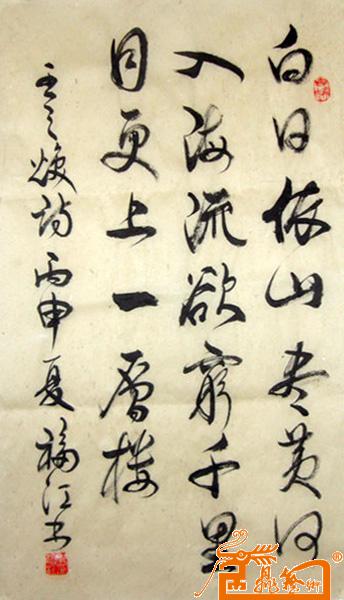 白日依山尽黄河
入海流欲窮千里
目更上一層楼
王之焕诗丙申夏福江书